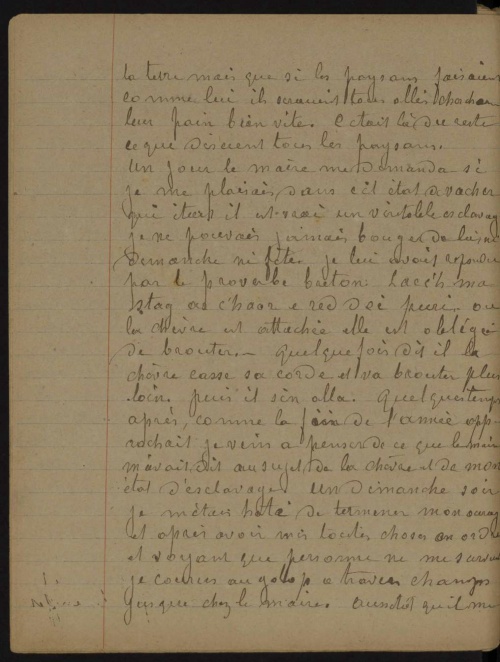 la terre mais que si les paysans faisaient
comme lui ils seraient tous allés chercher
leur pain bien vite. C'etait là du reste
ce que disaient tous les paysans.
Un jour le maire me demanda si
je me plaisais dans cet état de vacher
qui était il est vrai un véritable esclavage
je ne pouvais jamais bouger de là ni
dimanche ni fête. je lui avais repondu
par le proverbe breton: Lacc'h ma
stag ar c'haor e red dei peuri. ou
la chèvre est attachée elle est obligée
de brouter. — quelquefois dit il la
chèvre casse sa corde et va brouter plus
loin. puis il s'en alla. Quelques temps
après, comme la fin de l'année app-
rochait je vins a penser de ce que le maire
m'avait dit au sujet de la chèvre et de mon
état d'esclavage. Un dimanche soir
je m'étais haté de terminer mon ouvrage
et après avoir mis toutes choses en ordre
et voyant que personne ne me
je courus au galop a travers champs
jusque chez le maire. aussitôt qu'il me